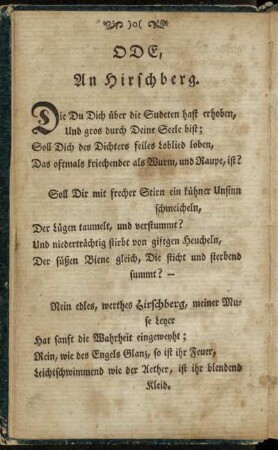 )o(
ODE,
An Hirschberg.
Die Du Dich über die Sudeten hast erhoben,
Und gros durch Deine Seele bist;
Soll Dich des Dichters feiles Loblied loben,
Das oftmals kriechender als Wurm, und Raupe, ist?
Soll Dir mit frecher Stirn ein kühner Unsinn
schmeicheln,
Der Lügen taumelt, und verstummt?
Und niederträchtig stirbt von giftgen Heucheln,
Der süßen Biene gleich, Die sticht und sterbend
summt? —
Nein edles, werthes Hirschberg, meiner Mu-
se Leyer
Hat sanft die Wahrheit eingeweyht;
Rein, wie des Engels Glanz, so ist ihr Feuer,
Leichtschwimmend wie der Aether, ist ihr blendend
Kleid.